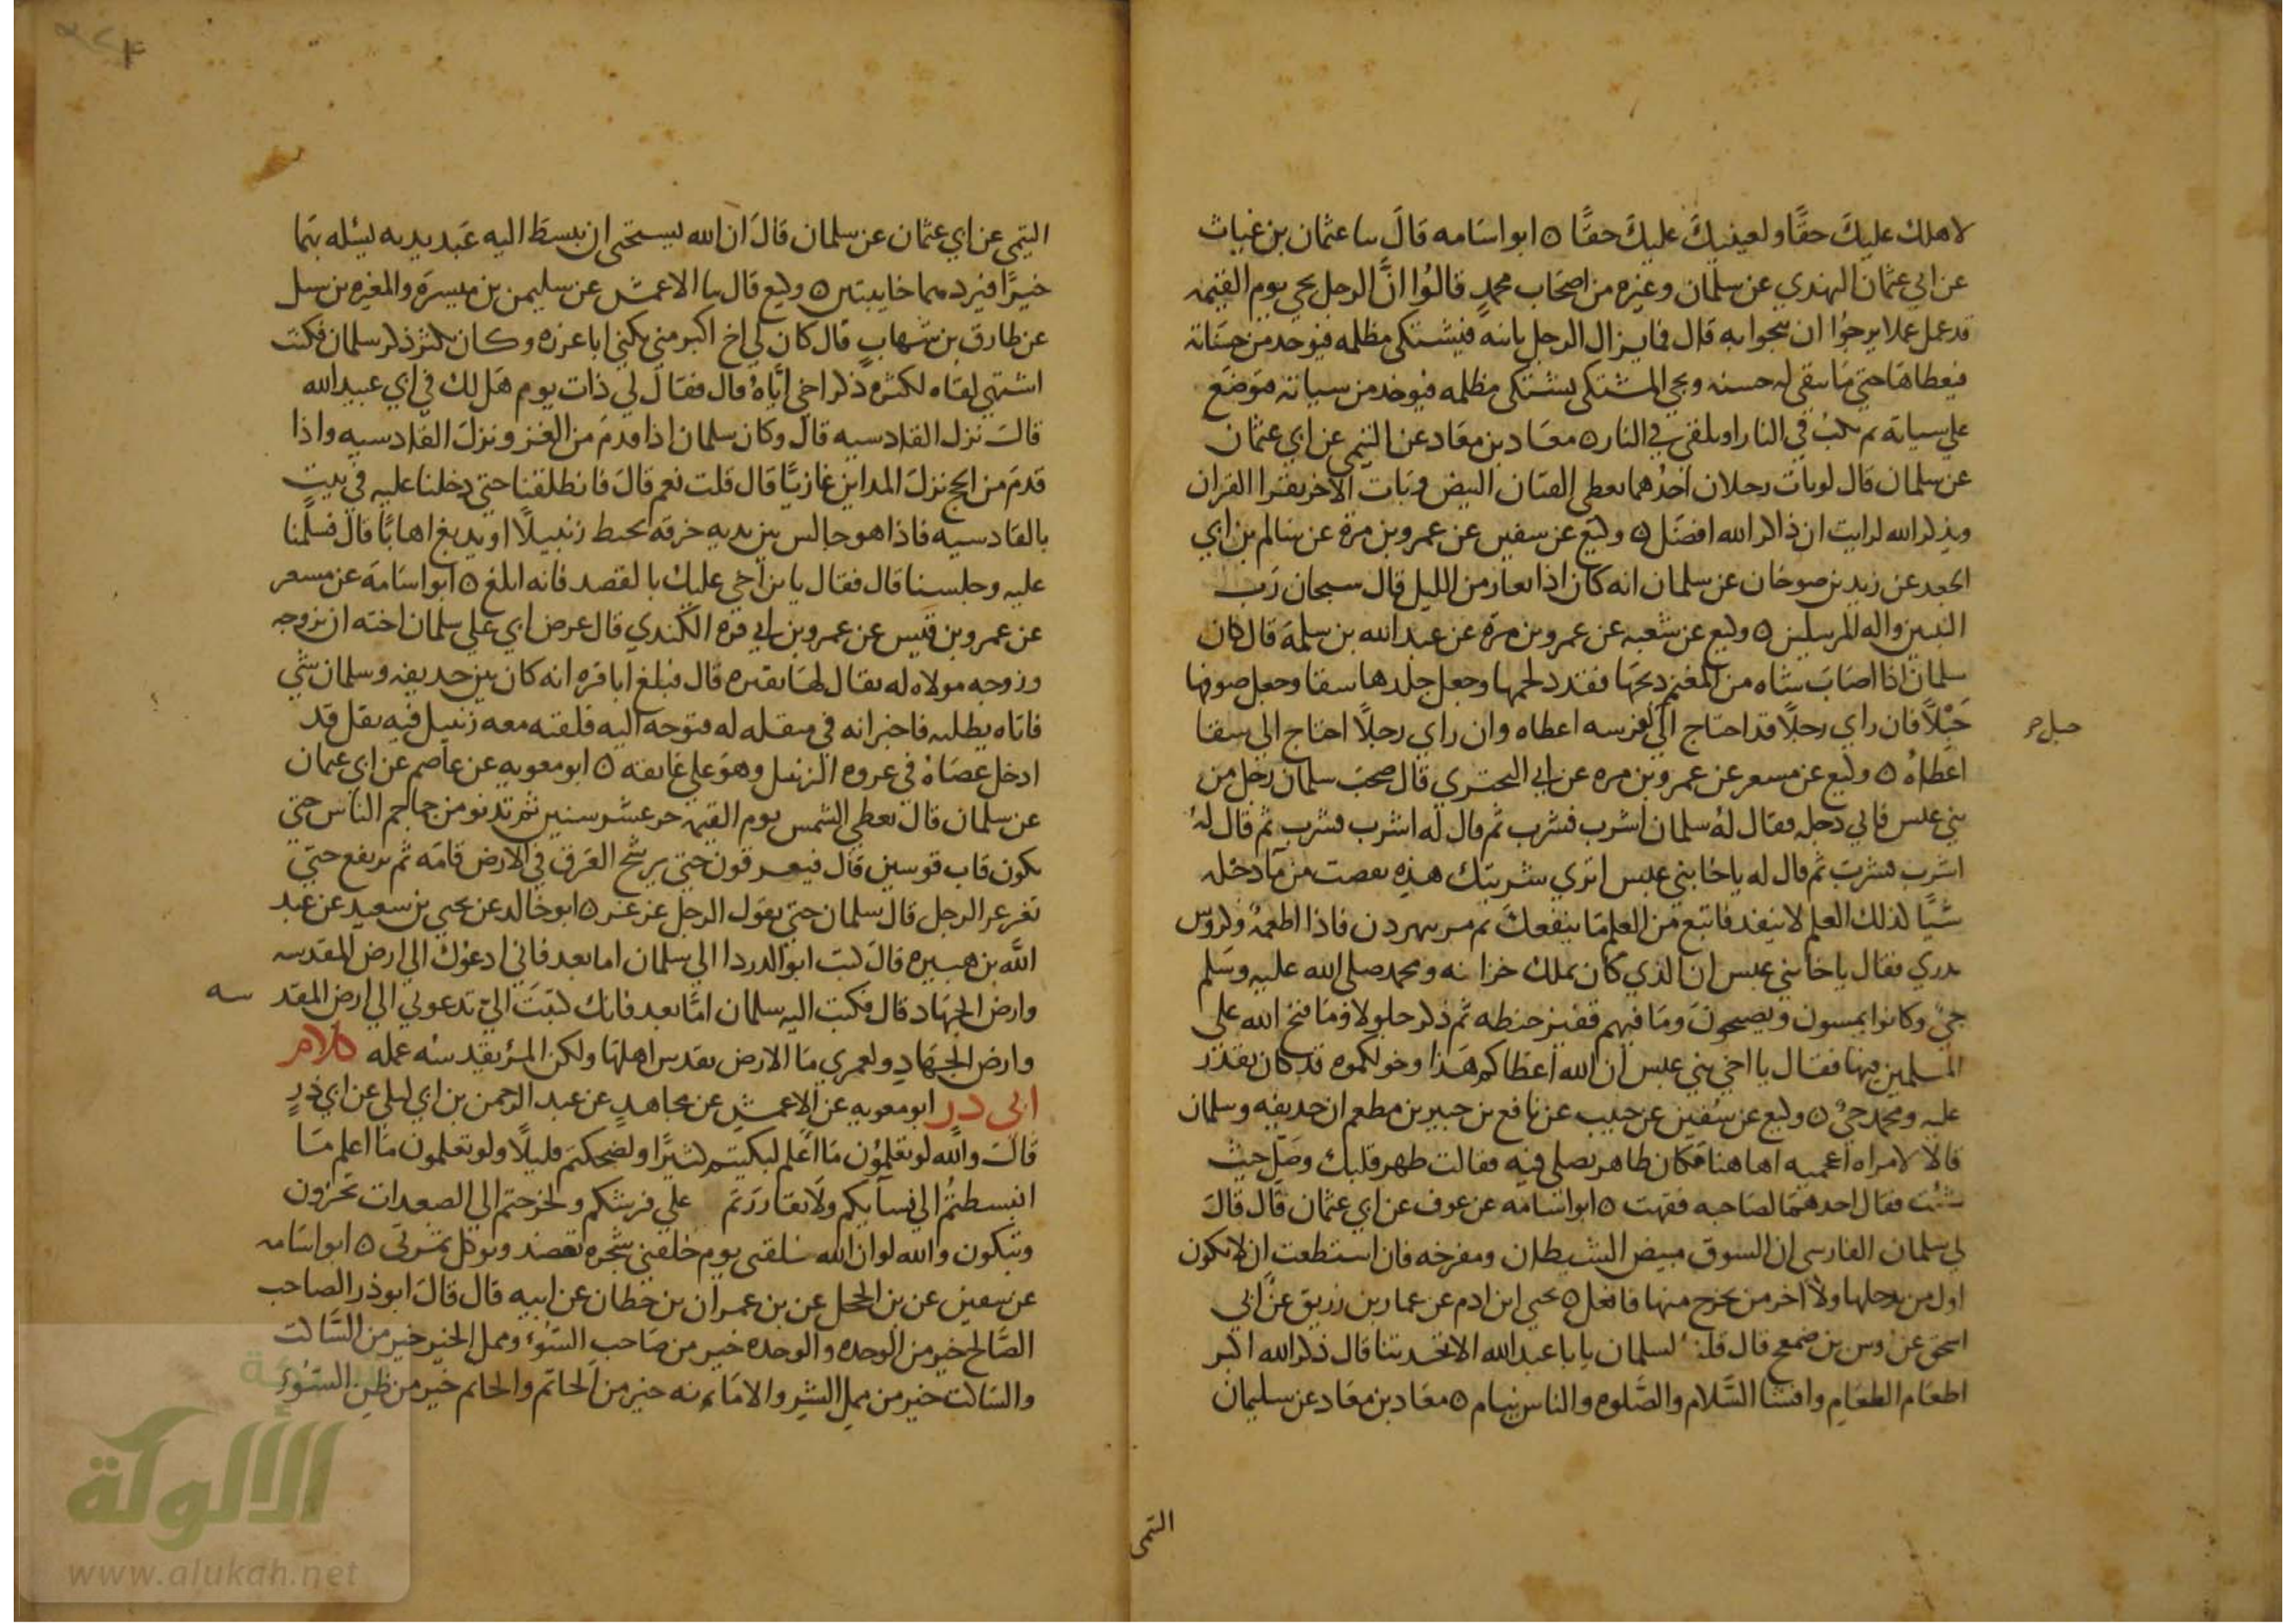 لاهلك عليك حقا ولعينيك عليك حقا ه ابو اسامه قال سا عثمان بن غياث
عن ابي عثمان النهدي عن سلمان وغيره من اصحاب محمد قالوا ان الرجل يجي يوم القيمه
قد عمل عملا يرجوا ان ينجوا به قال فما يزال الرجل ياتيه فيشتكي مظلمه فيوخد من حسناته
فيعطاها حتى ما يبقى له حسنه ويجي المشتكي يشتكي مظلمه فيوخد من سياته فتوضع
على سياته ثم يكب في النار او يلقى في النار ه معاد بن معاد عن التيمي عن ابي عثمان
عن سلمان قال لو بات رجلان احدهما يعطي القيان البيض وبات الاخر يقرا القران
ويذكر الله لرايت ان ذاكر الله افضل ه وكيع عن سفين عن عمرو بن مرة عن سالم بن ابي
الجعد عن زيد بن صوحان عن سلمان انه كان اذا تعار من الليل قال سبحان رب
النبيين واله المرسلين ه وكيع عن شعبه عن عمرو بن مرة عن عبد الله بن سلمة قال كان
سلمان اذا اصاب شاه من المغنم دبحها فقدد لحمها وجعل جلدها سقا وجعل صوفها
حبلا فان راي رجلا قد احتاج الى لفرسه اعطاه وان راي رجلا احتاج الى سقا
حبل ح
اعطاه ه وكيع عن مسعر عن عمرو بن مره عن ابي البحتري قال صحب سلمان رجل من
بني عبس فاتي دجله فقال له سلمان اشرب فشرب ثم قال له اشرب فشرب ثم قال له
اشرب فشرب ثم قال له ياخا بني عبس اترى شربتك هذه نقصت من ما دجله
شيا كذلك العلم لا ينفد فاتبع من العلم ما ينفعك ثم مر بنهر دن فاذا اطعمه وكدوس
تدري فقال ياخا بني عبس ان الذي كان يملك خزانه ومحمد صلى الله عليه وسلم
حي وكانوا يمسون ويصبحون وما فيهم قفيز حنطه ثم ذكر جلولا وما فتح الله على
المسلمين فيها فقال يا اخي بني عبس ان الله اعطاكم هذا وخولكموه قد كان يقدر
عليه ومحمد حي ه وكيع عن سفين عن حبيب عن نافع بن جبير بن مطعم ان حديفه وسلمان
قالا لامراه اعجميه اهاهنا مكان طاهر يصلي فيه فقالت طهر قلبك وصل حيث
شئت فقال احدهما لصاحبه فقهت ه ابو اسامه عن عوف عن ابي عثمان قال قال
لي سلمان الفارسي ان السوق مبيض الشيطان ومفرخه فان استطعت ان لا تكون
اول من يدخلها ولا اخر من يخرج منها فافعل ه يحيى ابن ادم عن عمار بن رزيق عن ابي
اسحق عن اوس بن ضمعج قال قلنا لسلمان يا با عبد الله الا تحدثنا قال ذكر الله اكبر
اطعام الطعام وافشا السلام والصلوه والناس نيام ه معاد بن معاد عن سليمان
التيمي
التيمي عن ابي عثمان عن سلمان قال ان الله ليستحيي ان يبسط اليه عبد يديه يسئله بهما
خيرا فيردهما خايبتين ه وكيع قال سا الاعمش عن سليمن بن ميسرة والمغيره بن سبل
عن طارق بن شهاب قال كان لي اخ اكبر مني يكنى ابا عزره وكان يكثر ذكر سلمان فكنت
اشتهي لقاه لكثره ذكر اخي اياه قال فقال لي ذات يوم هل لك في ابي عبيد الله
قالت نزل القادسيه قال وكان سلمان اذا قدم من الغزو نزل القادسيه واذا
قدم من الحج نزل المداين غازيا قال قلت نعم قال فانطلقنا حتى دخلنا عليه في بيت
بالقادسيه فاذا هو جالس بين يديه خرقه يخيط زنبيلا او يدبغ اهابا قال فسلمنا
عليه وجلسنا قال فقال يا بن اخي عليك بالقصد فانه ابلغ ه ابو اسامة عن مسعر
عن عمرو بن قيس عن عمرو بن ابي قره الكندي قال عرض ابي على سلمان اخته ان يزوجه
وزوجه مولاه له يقال لها بقيره قال فبلغ ابا قره انه كان بين حديفه وسلمان شي
فاتاه يطلبه فاخبر انه في مبقله له فتوجه اليه فلقيه معه زنبيل فيه بقل قد
ادخل عصاه في عروه الزنبيل وهو على عاتقه ه ابو معويه عن عاصم عن ابي عثمان
عن سلمان قال تعطى الشمس يوم القيمه حر عشر سنين ثم تدنو من جماجم الناس حتى
يكون قاب قوسين قال فيعرقون حتى يرشح العرق في الارض قامه ثم يرتفع حتى
يغرغر الرجل قال سلمان حتى يقول الرجل غر غر ه ابو خالد عن يحيى بن سعيد عن عبد
الله بن هبيره قال كتب ابو الدردا الى سلمان اما بعد فاني ادعوك الى ارض المقدسه
وارض الجهاد قال فكتب اليه سلمان اما بعد فانك كتبت الي تدعوني الى ارض المقد سه
وارض الجهاد ولعمري ما الارض يقدس اهلها ولكن المرء يقدسه عمله كلام
ابي در ابو معويه عن الاعمش عن مجاهد عن عبد الرحمن بن ابي ليلى عن ابي ذر
قالت والله لو تعلمون ما اعلم لبكيتم كثيرا ولضحكتم قليلا ولو تعلمون ما اعلم ما
انبسطتم الى نسايكم ولا تقاررتم على فرشكم ولخرجتم الى الصعدات تجرون
وتبكون والله لو ان الله خلقني يوم خلقني شجره تعضد وتوكل ثمرتي ه ابو اسامه
عن سفين عن بن الحجل عن بن عمران بن حطان عن ابيه قال قال ابو ذر الصاحب
الصالح خير من الوحده والوحده خير من صاحب السوء وممل الخير خير من الساكت
والساكت خير من ممل الشر والامانه خير من الخاتم والخاتم خير من ظن السوء
الألوكة
www.alukah.net